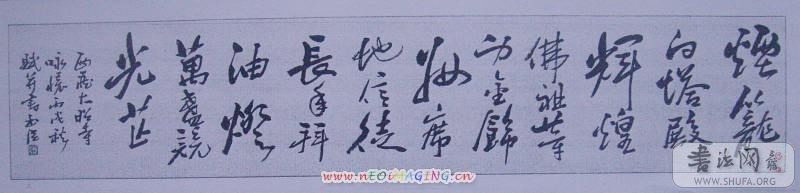 煙籠
白塔殿
輝煌
佛祖等
身金錦
妝席
地信徒
長年拜
油燈
萬盞亮
光芒
西藏大昭寺
詠懷丙戌秋
賦並書於
www.nEOiMAGING.cn
书法网
WWW.SHUFA.ORG